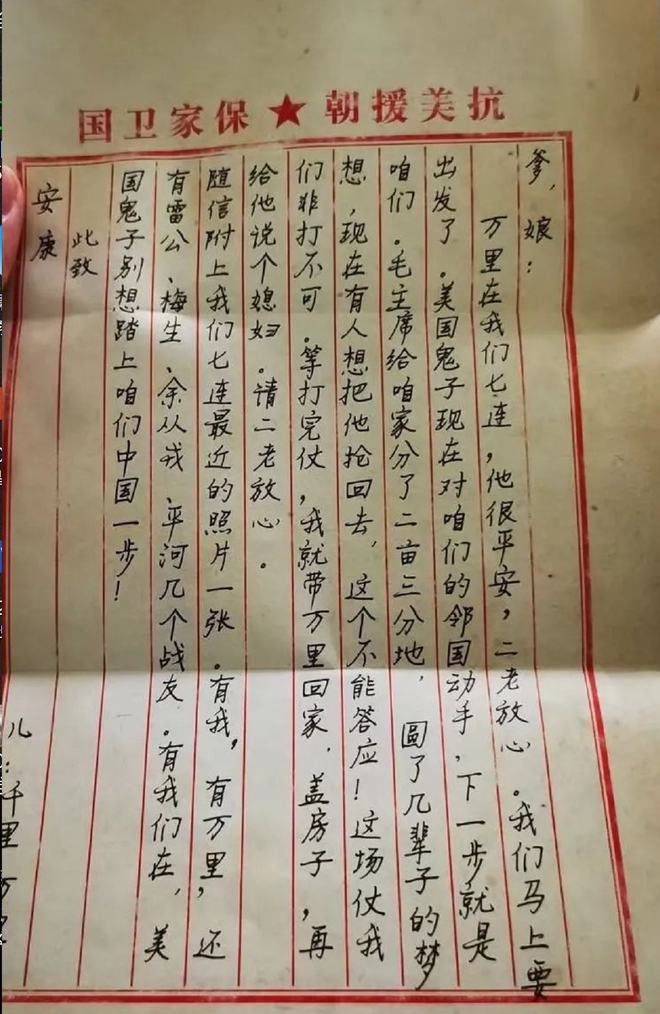 抗美援朝★保家卫国
爹，娘：
万里在我们七连，他很平安，二老放心。我们马上要
出发了。美国鬼子现在对咱们的邻国动手，下一步就是
咱们。毛主席给咱家分了二亩三分地，圆了几辈子的梦
想，现在有人想把他抢回去，这个不能答应！这场仗我
们非打不可。等打完仗，我就带万里回家，盖房子，再
给他说个媳妇。请二老放心。
随信附上我们七连最近的照片一张。有我，有万里，还
有雷公、梅生、余从戎、平河几个战友。有我们在，美
国鬼子别想踏上咱们中国一步！
此致
安康
儿：千里 万里